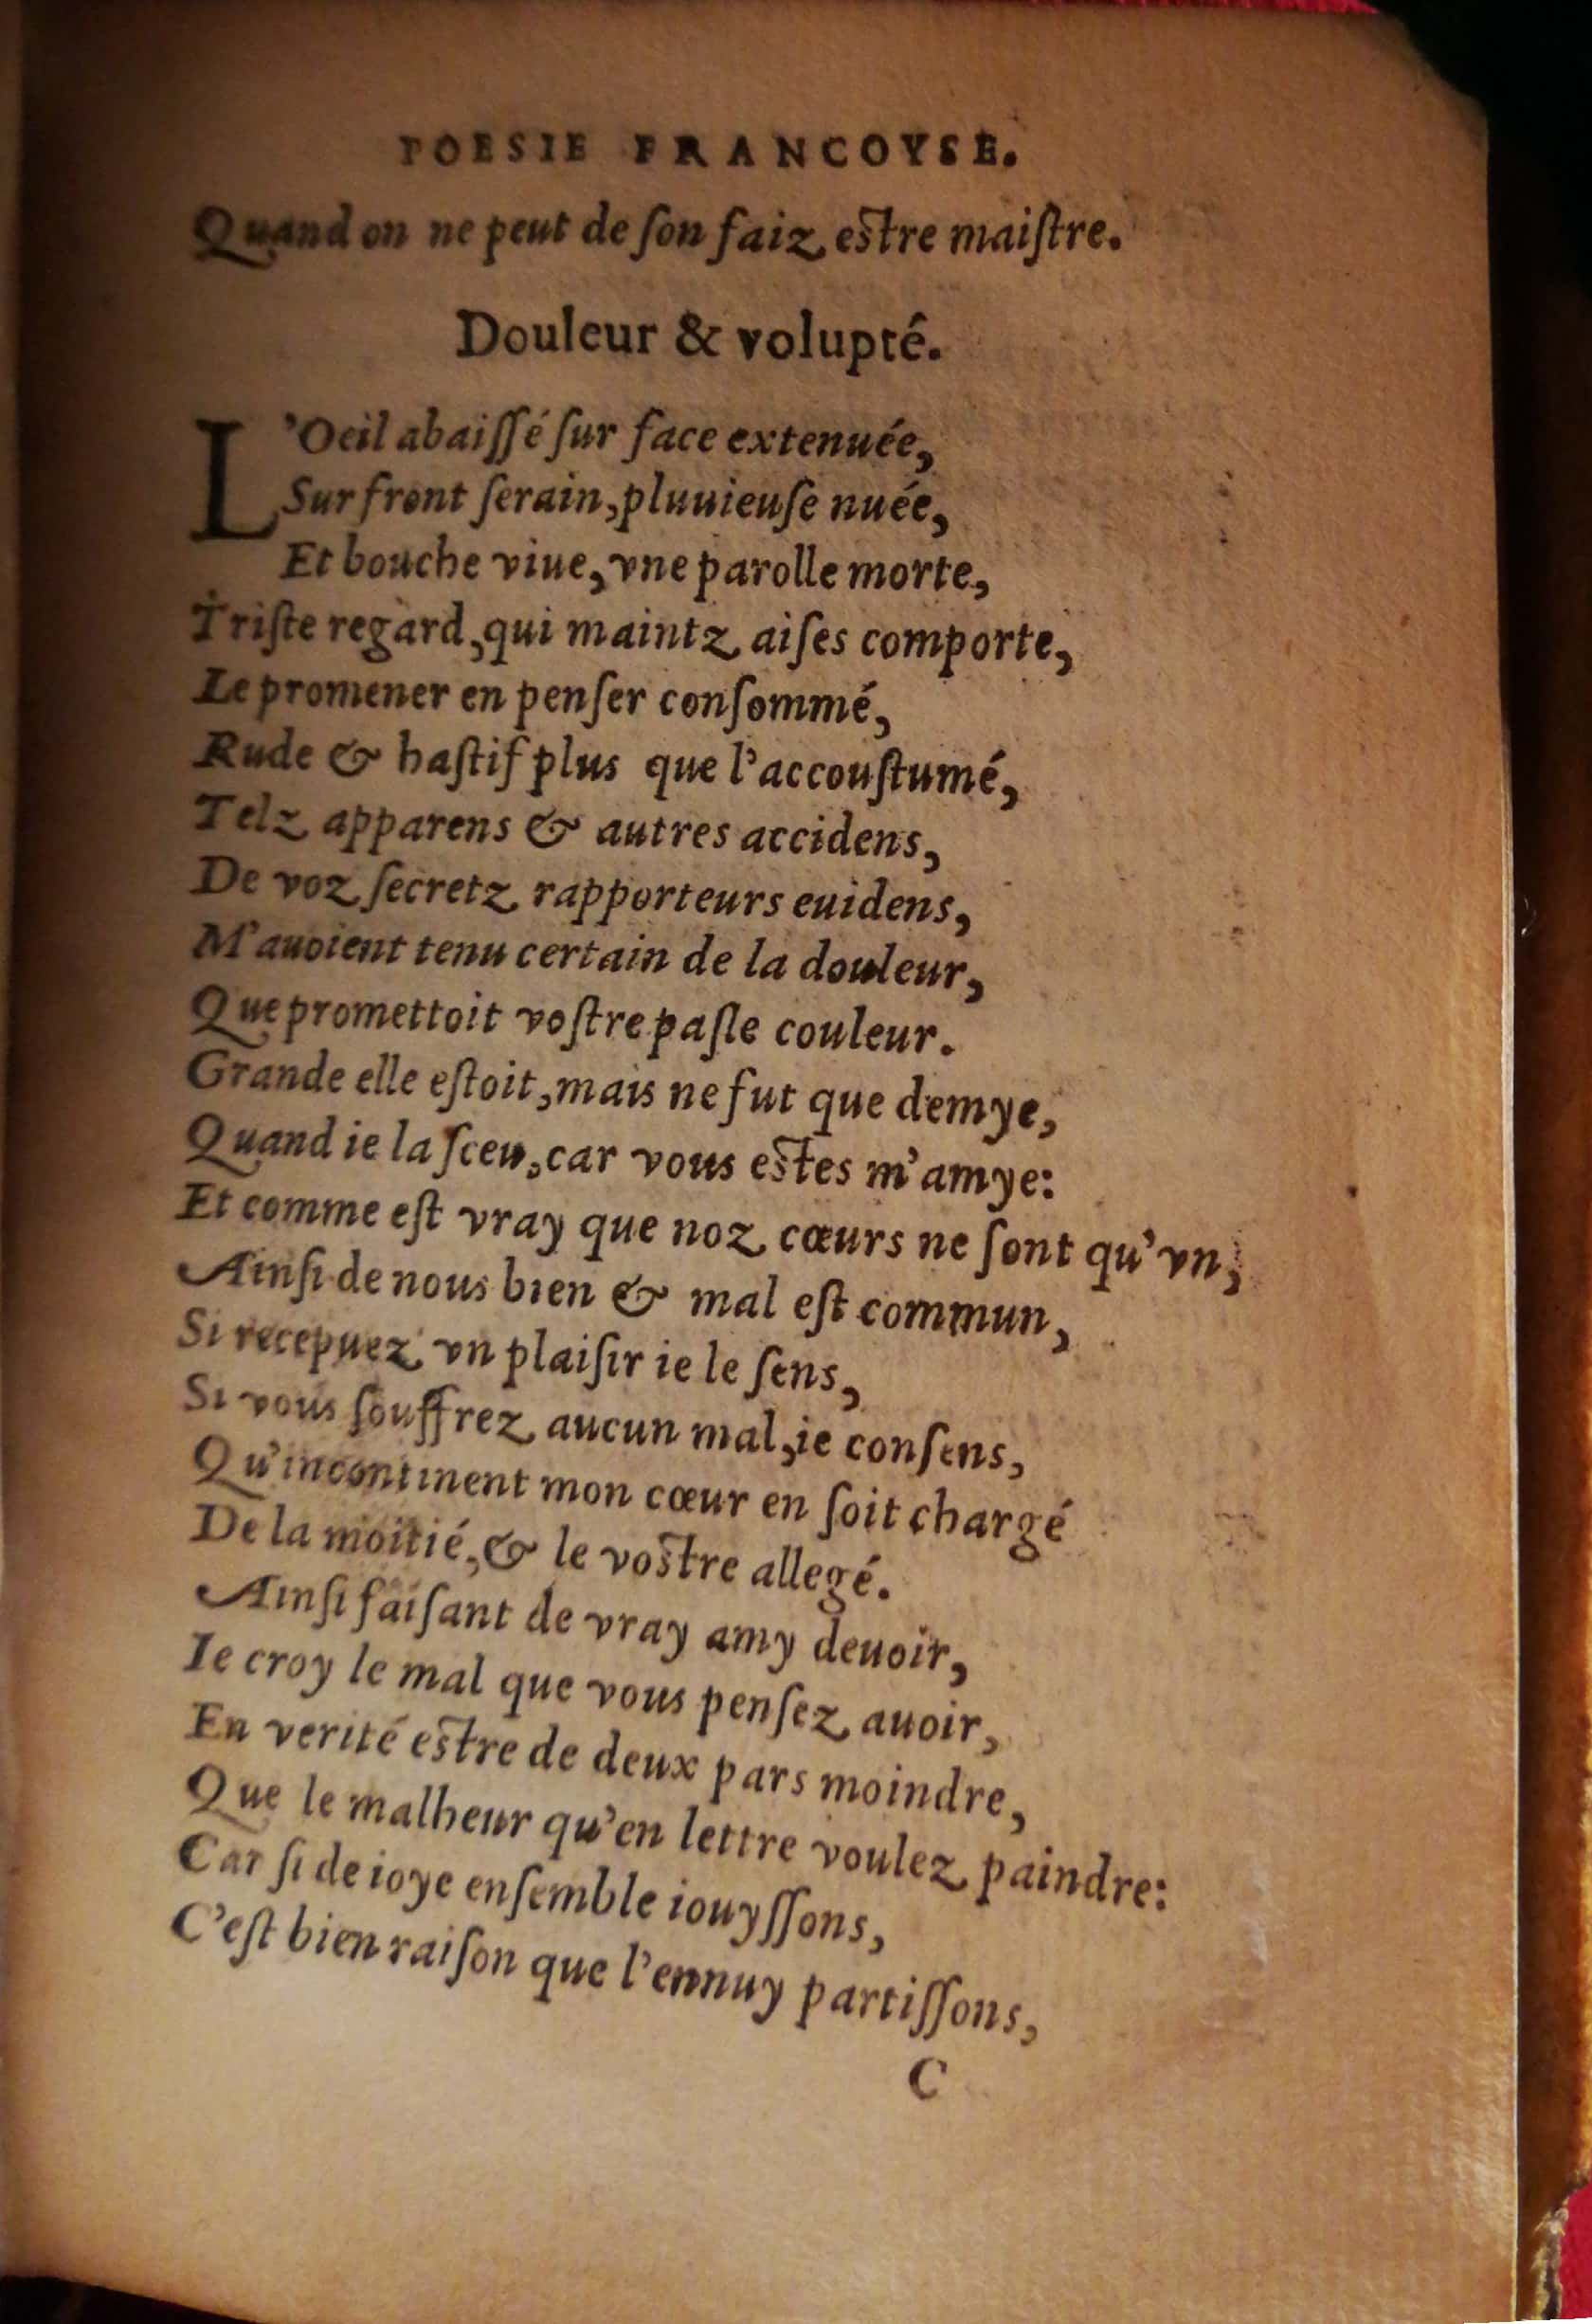 POESIE FRANCOYSE.
Quand on ne peut de ſon faiz eſtre maiſtre.
Douleur & volupté.
L'Oeil abaiſſé ſur face extenuée,
Sur front ſerain, pluuieuſe nuée,
Et bouche viue, vne parolle morte,
Triſte regard, qui maintz aiſes comporte,
Le promener en penſer conſommé,
Rude & haſtif plus que l'accouſtumé,
Telz apparens & autres accidens,
De voz ſecretz rapporteurs euidens,
M'auoient tenu certain de la douleur,
Que promettoit voſtre paſle couleur.
Grande elle eſtoit, mais ne fut que demye,
Quand ie la ſceu, car vous eſtes m'amye:
Et comme eſt vray que noz cœurs ne ſont qu'vn,
Ainſi de nous bien & mal eſt commun,
Si recepuez vn plaiſir ie le ſens,
Si vous ſouffrez aucun mal, ie conſens,
Qu'incontinent mon cœur en ſoit chargé
De la moitié, & le voſtre allegé.
Ainſi faiſant de vray amy deuoir,
Ie croy le mal que vous penſez auoir,
En verité eſtre de deux pars moindre,
Que le malheur qu'en lettre voulez paindre:
Car ſi de ioye enſemble iouyſſons,
C'eſt bien raiſon que l'ennuy partiſſons,
C